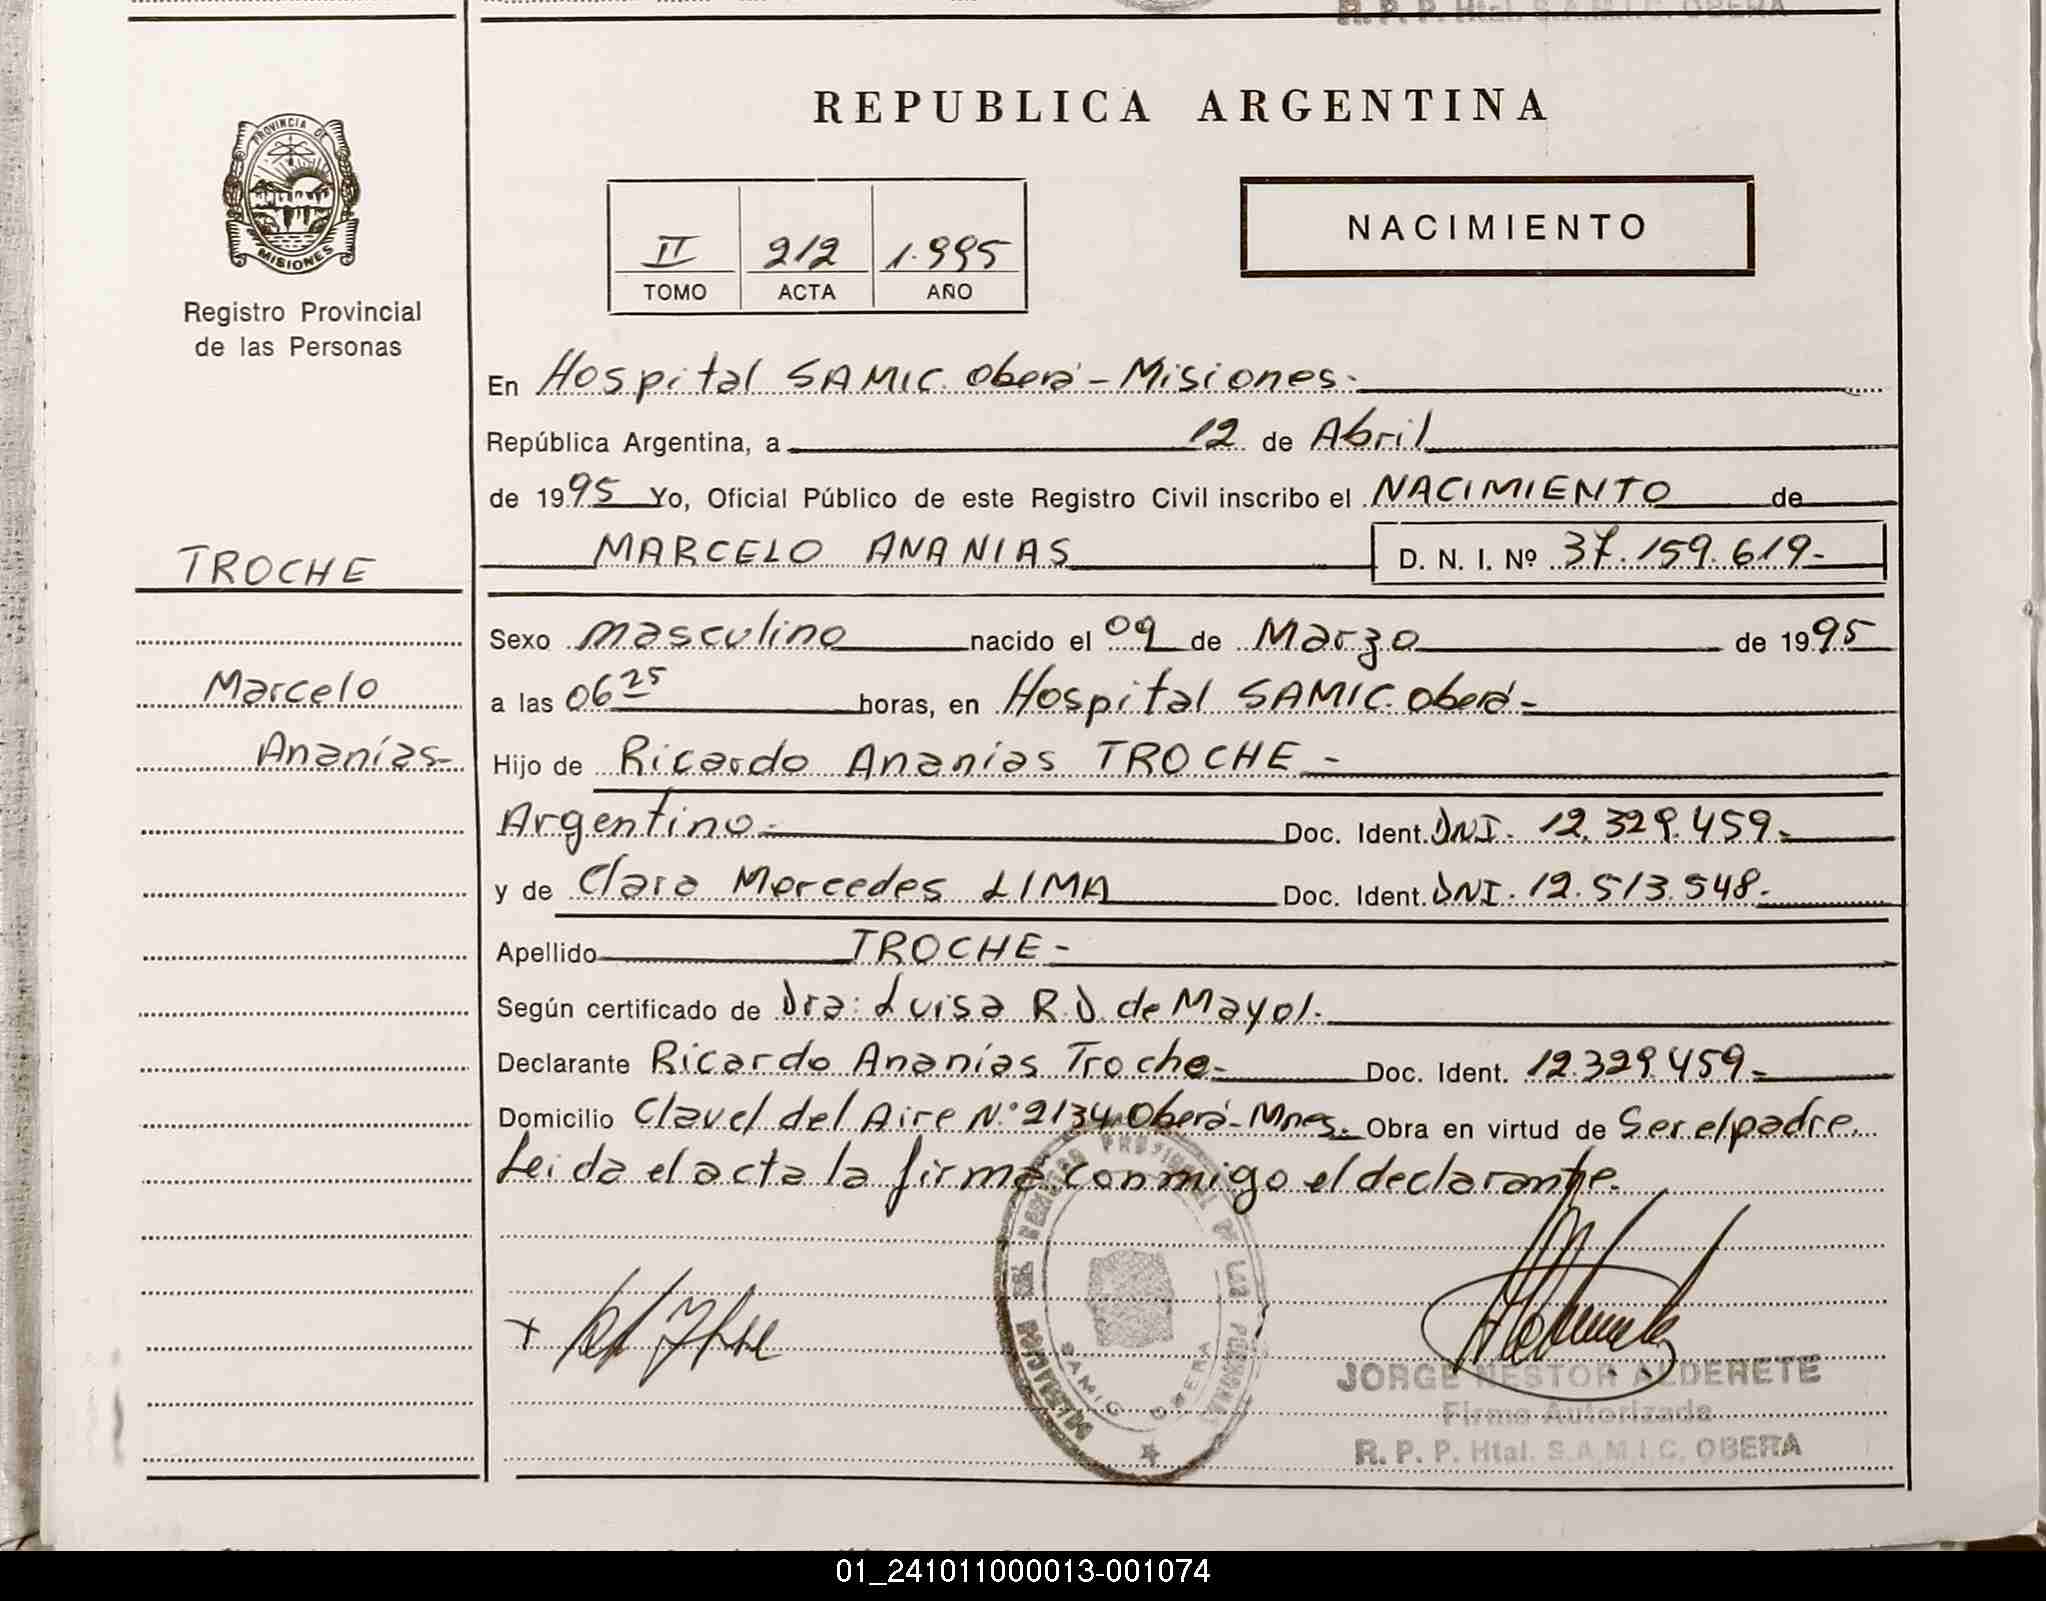 R. P. P. Htal. S.A.M.I.C. OBERA
REPUBLICA ARGENTINA
PROVINCIA DE
MISIONES
Registro Provincial
de las Personas
NACIMIENTO
II 212 1.995
TOMO ACTA AÑO
En Hospital SAMIC. Oberá - Misiones.
República Argentina, a 12 de Abril
de 1995 Yo, Oficial Público de este Registro Civil inscribo el NACIMIENTO de
MARCELO ANANIAS D. N. I. Nº 37.159.619-
TROCHE
Marcelo
Ananías-
Sexo masculino nacido el 09 de Marzo de 1995
a las 06 25 horas, en Hospital SAMIC. Oberá-
Hijo de Ricardo Ananías TROCHE -
Argentino- Doc. Ident. DNI. 12.329.459-
y de Clara Mercedes LIMA Doc. Ident. DNI. 12.513.548-
Apellido TROCHE-
Según certificado de Dra: Luisa R.D. de Mayol.
Declarante Ricardo Ananías Troche- Doc. Ident. 12.329.459-
Domicilio Clavel del Aire N.º 2134 Oberá-Mnes. Obra en virtud de Ser el padre.
Leida el acta la firma conmigo el declarante.
SAMIC OBERA
JORGE NESTOR ALDERETE
Firma Autorizada
R. P. P. Htal. S.A.M.I.C. OBERA
01_241011000013-001074